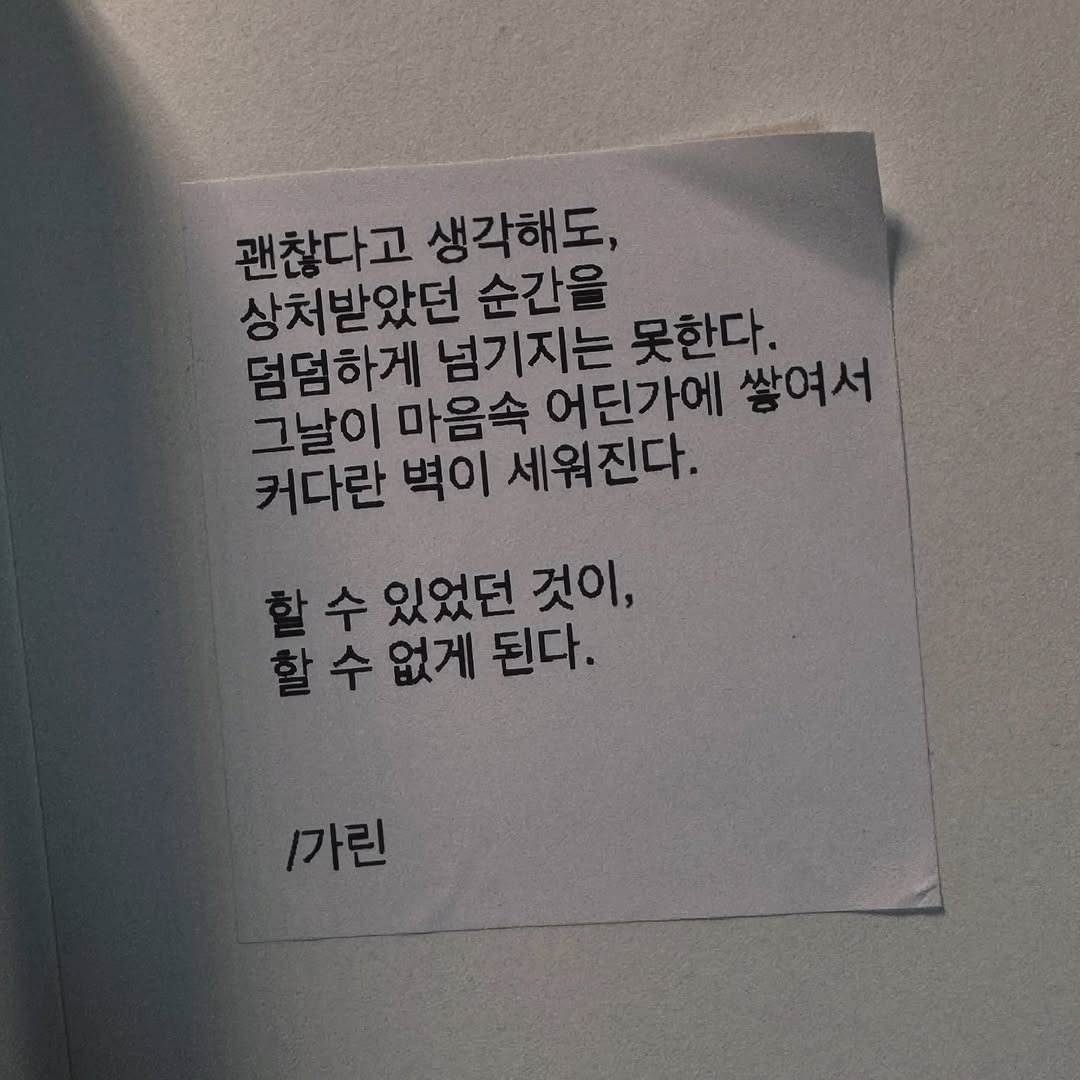 괜찮다고 생각해도,
상처받았던 순간을
덤덤하게 넘기지는 못한다.
그날이 마음속 어딘가에 쌓여서
커다란 벽이 세워진다.
할 수 있었던 것이,
할 수 없게 된다.
/가린